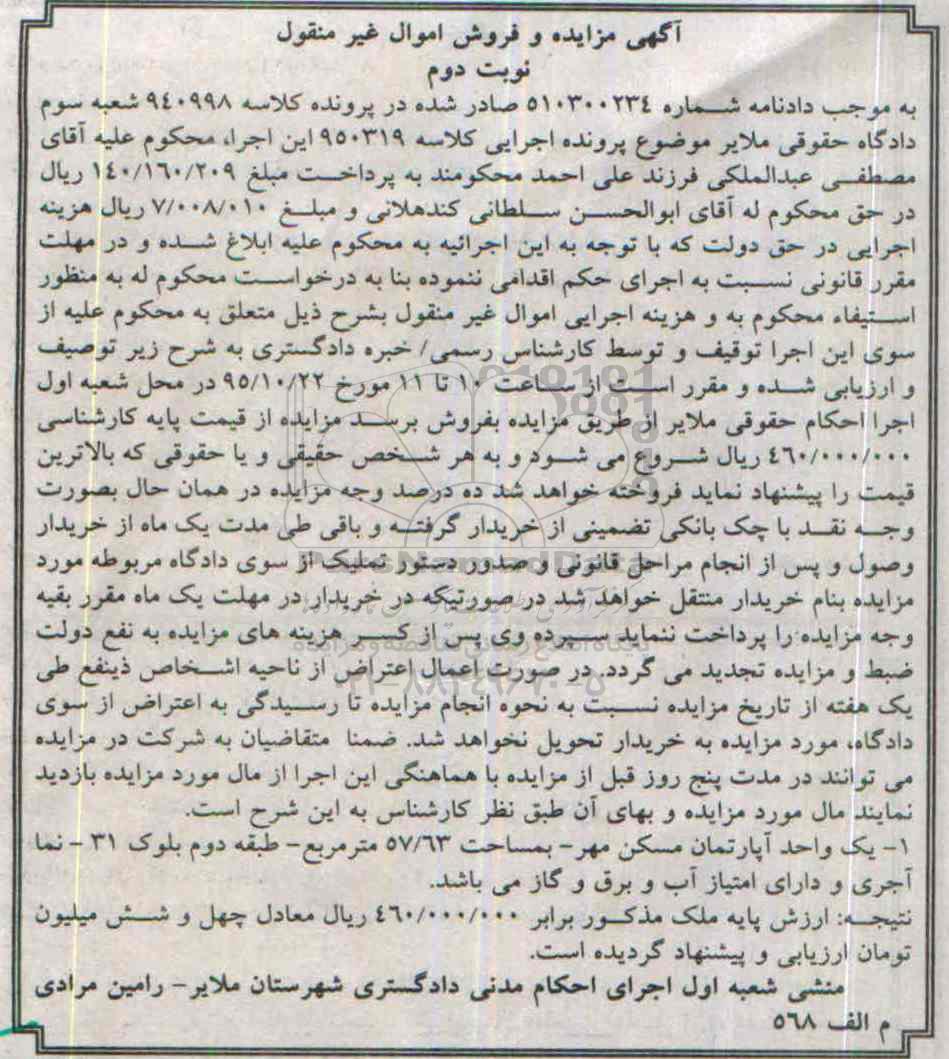 آگهی مزایده و فروش اموال غیر منقول
نوبت دوم
به موجب دادنامه شماره ٥١٠٣٠٠٢٣٤ صادر شده در پرونده کلاسه ٩٤٠٩٩٨ شعبه سوم
دادگاه حقوقی ملایر موضوع پرونده اجرایی کلاسه ٩٥٠٣١٩ این اجرا، محکوم علیه آقای
مصطفی عبدالملکی فرزند علی احمد محکومند به پرداخت مبلغ ١٤٠/١٦٠/٢٠٩ ریال
در حق محکوم له آقای ابوالحسن سلطانی کندهلانی و مبلغ ٧/٠٠٨/٠١٠ ریال هزینه
اجرایی در حق دولت که با توجه به این اجرائیه به محکوم علیه ابلاغ شده و در مهلت
مقرر قانونی نسبت به اجرای حکم اقدامی ننموده بنا به درخواست محکوم له به منظور
استیفاء محکوم به و هزینه اجرایی اموال غیر منقول بشرح ذیل متعلق به محکوم علیه از
سوی این اجرا توقیف و توسط کارشناس رسمی/ خبره دادگستری به شرح زیر توصیف
و ارزیابی شده و مقرر است از ساعت ١٠ تا ١١ مورخ ٩٥/١٠/٢٢ در محل شعبه اول
اجرا احکام حقوقی ملایر از طریق مزایده بفروش برسد مزایده از قیمت پایه کارشناسی
٤٦٠/٠٠٠/٠٠٠ ریال شروع می شود و به هر شخص حقیقی و یا حقوقی که بالاترین
قیمت را پیشنهاد نماید فروخته خواهد شد ده درصد وجه مزایده در همان حال بصورت
وجه نقد با چک بانکی تضمینی از خریدار گرفته و باقی طی مدت یک ماه از خریدار
وصول و پس از انجام مراحل قانونی و صدور دستور تملیک از سوی دادگاه مربوطه مورد
مزایده بنام خریدار منتقل خواهد شد در صورتیکه در خریدار در مهلت یک ماه مقرر بقیه
وجه مزایده را پرداخت ننماید سپرده وی پس از کسر هزینه های مزایده به نفع دولت
ضبط و مزایده تجدید می گردد. در صورت اعمال اعتراض از ناحیه اشخاص ذینفع طی
یک هفته از تاریخ مزایده نسبت به نحوه انجام مزایده تا رسیدگی به اعتراض از سوی
دادگاه، مورد مزایده به خریدار تحویل نخواهد شد. ضمنا متقاضیان به شرکت در مزایده
می توانند در مدت پنج روز قبل از مزایده با هماهنگی این اجرا از مال مورد مزایده بازدید
نمایند مال مورد مزایده و بهای آن طبق نظر کارشناس به این شرح است.
١- یک واحد آپارتمان مسکن مهر- بمساحت ٥٧/٦٣ مترمربع- طبقه دوم بلوک ٣١ - نما
آجری و دارای امتیاز آب و برق و گاز می باشد.
نتیجه: ارزش پایه ملک مذکور برابر ٤٦٠/٠٠٠/٠٠٠ ریال معادل چهل و شش میلیون
تومان ارزیابی و پیشنهاد گردیده است.
منشی شعبه اول اجرای احکام مدنی دادگستری شهرستان ملایر- رامین مرادی
م الف ٥٦٨